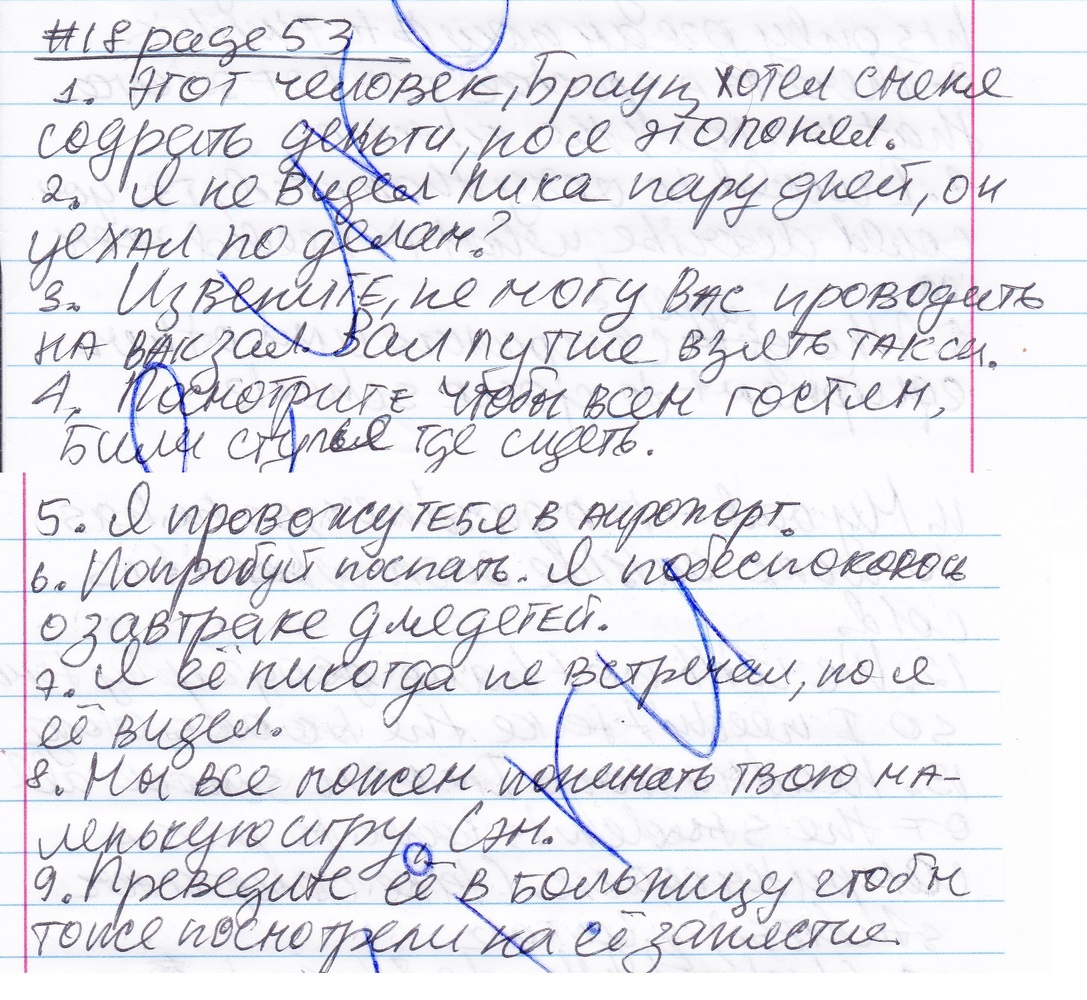 #18 page 53
1. Этот человек, Браун, хотел с меня
содрать деньги, но я это понял.
2. Я не видел Ника пару дней, он
уехал по делам?
3. Извените, не могу Вас проводить
на вакзал. Вам лутше взять такси.
4. Посмотрите чтобы всем гостям,
Били стулья где сидеть.
5. Я провожу тебя в аиропорт.
6. Попробуй поспать. Я побеспокоюсь
о завтраке для детей.
7. Я её никогда не встречал, но я
её видел.
8. Мы все можем понимать твою ма-
ленькую игру, Сэм.
9. Преведите её в больницу чтобы
тоже посмотрели на её запястие.